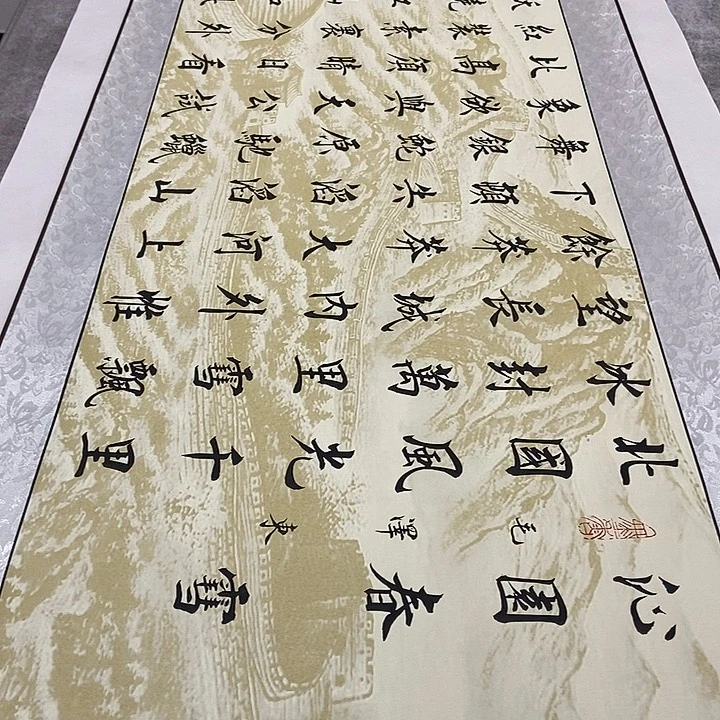 沁園春雪
毛澤東
北國風光千里
冰封萬里雪飄
望長城內外惟
餘莽莽大河上
下頓失滔滔山
舞銀蛇原馳蠟
象欲與天公試
比高須晴日看
紅裝素裹分外